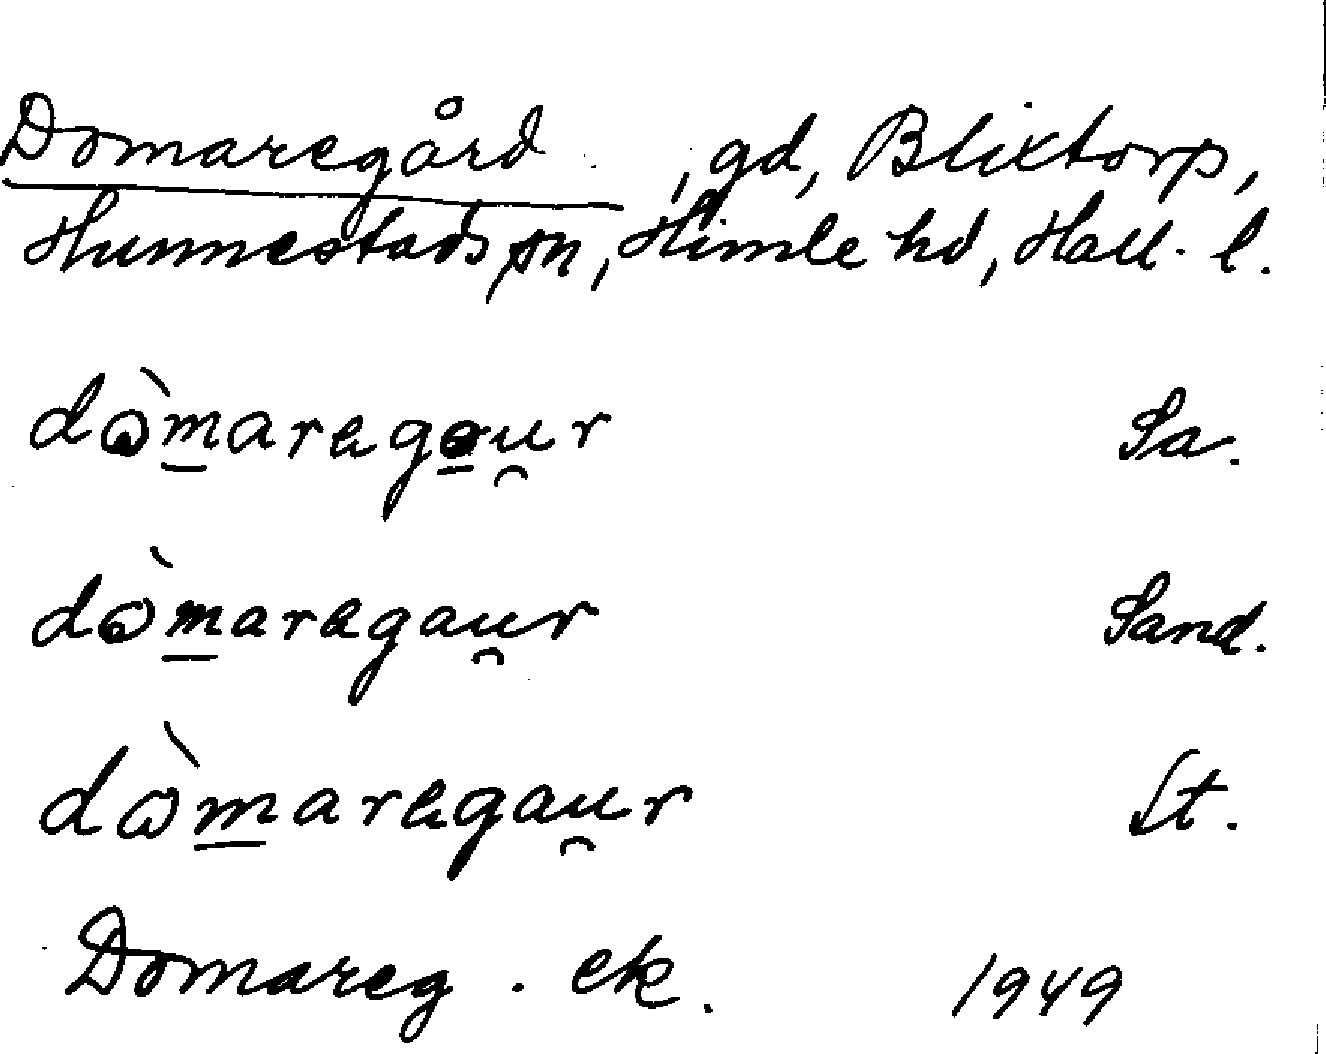 Domaregård , gd, Blixtorp,
Hunnestads sn, Himle hd, Hall. l.
dò̀m̲arega̲u̯r Sa.
dòm̲aregau̯r Sand.
dòm̲aregau̯r St.
Domareg. ek. 1949